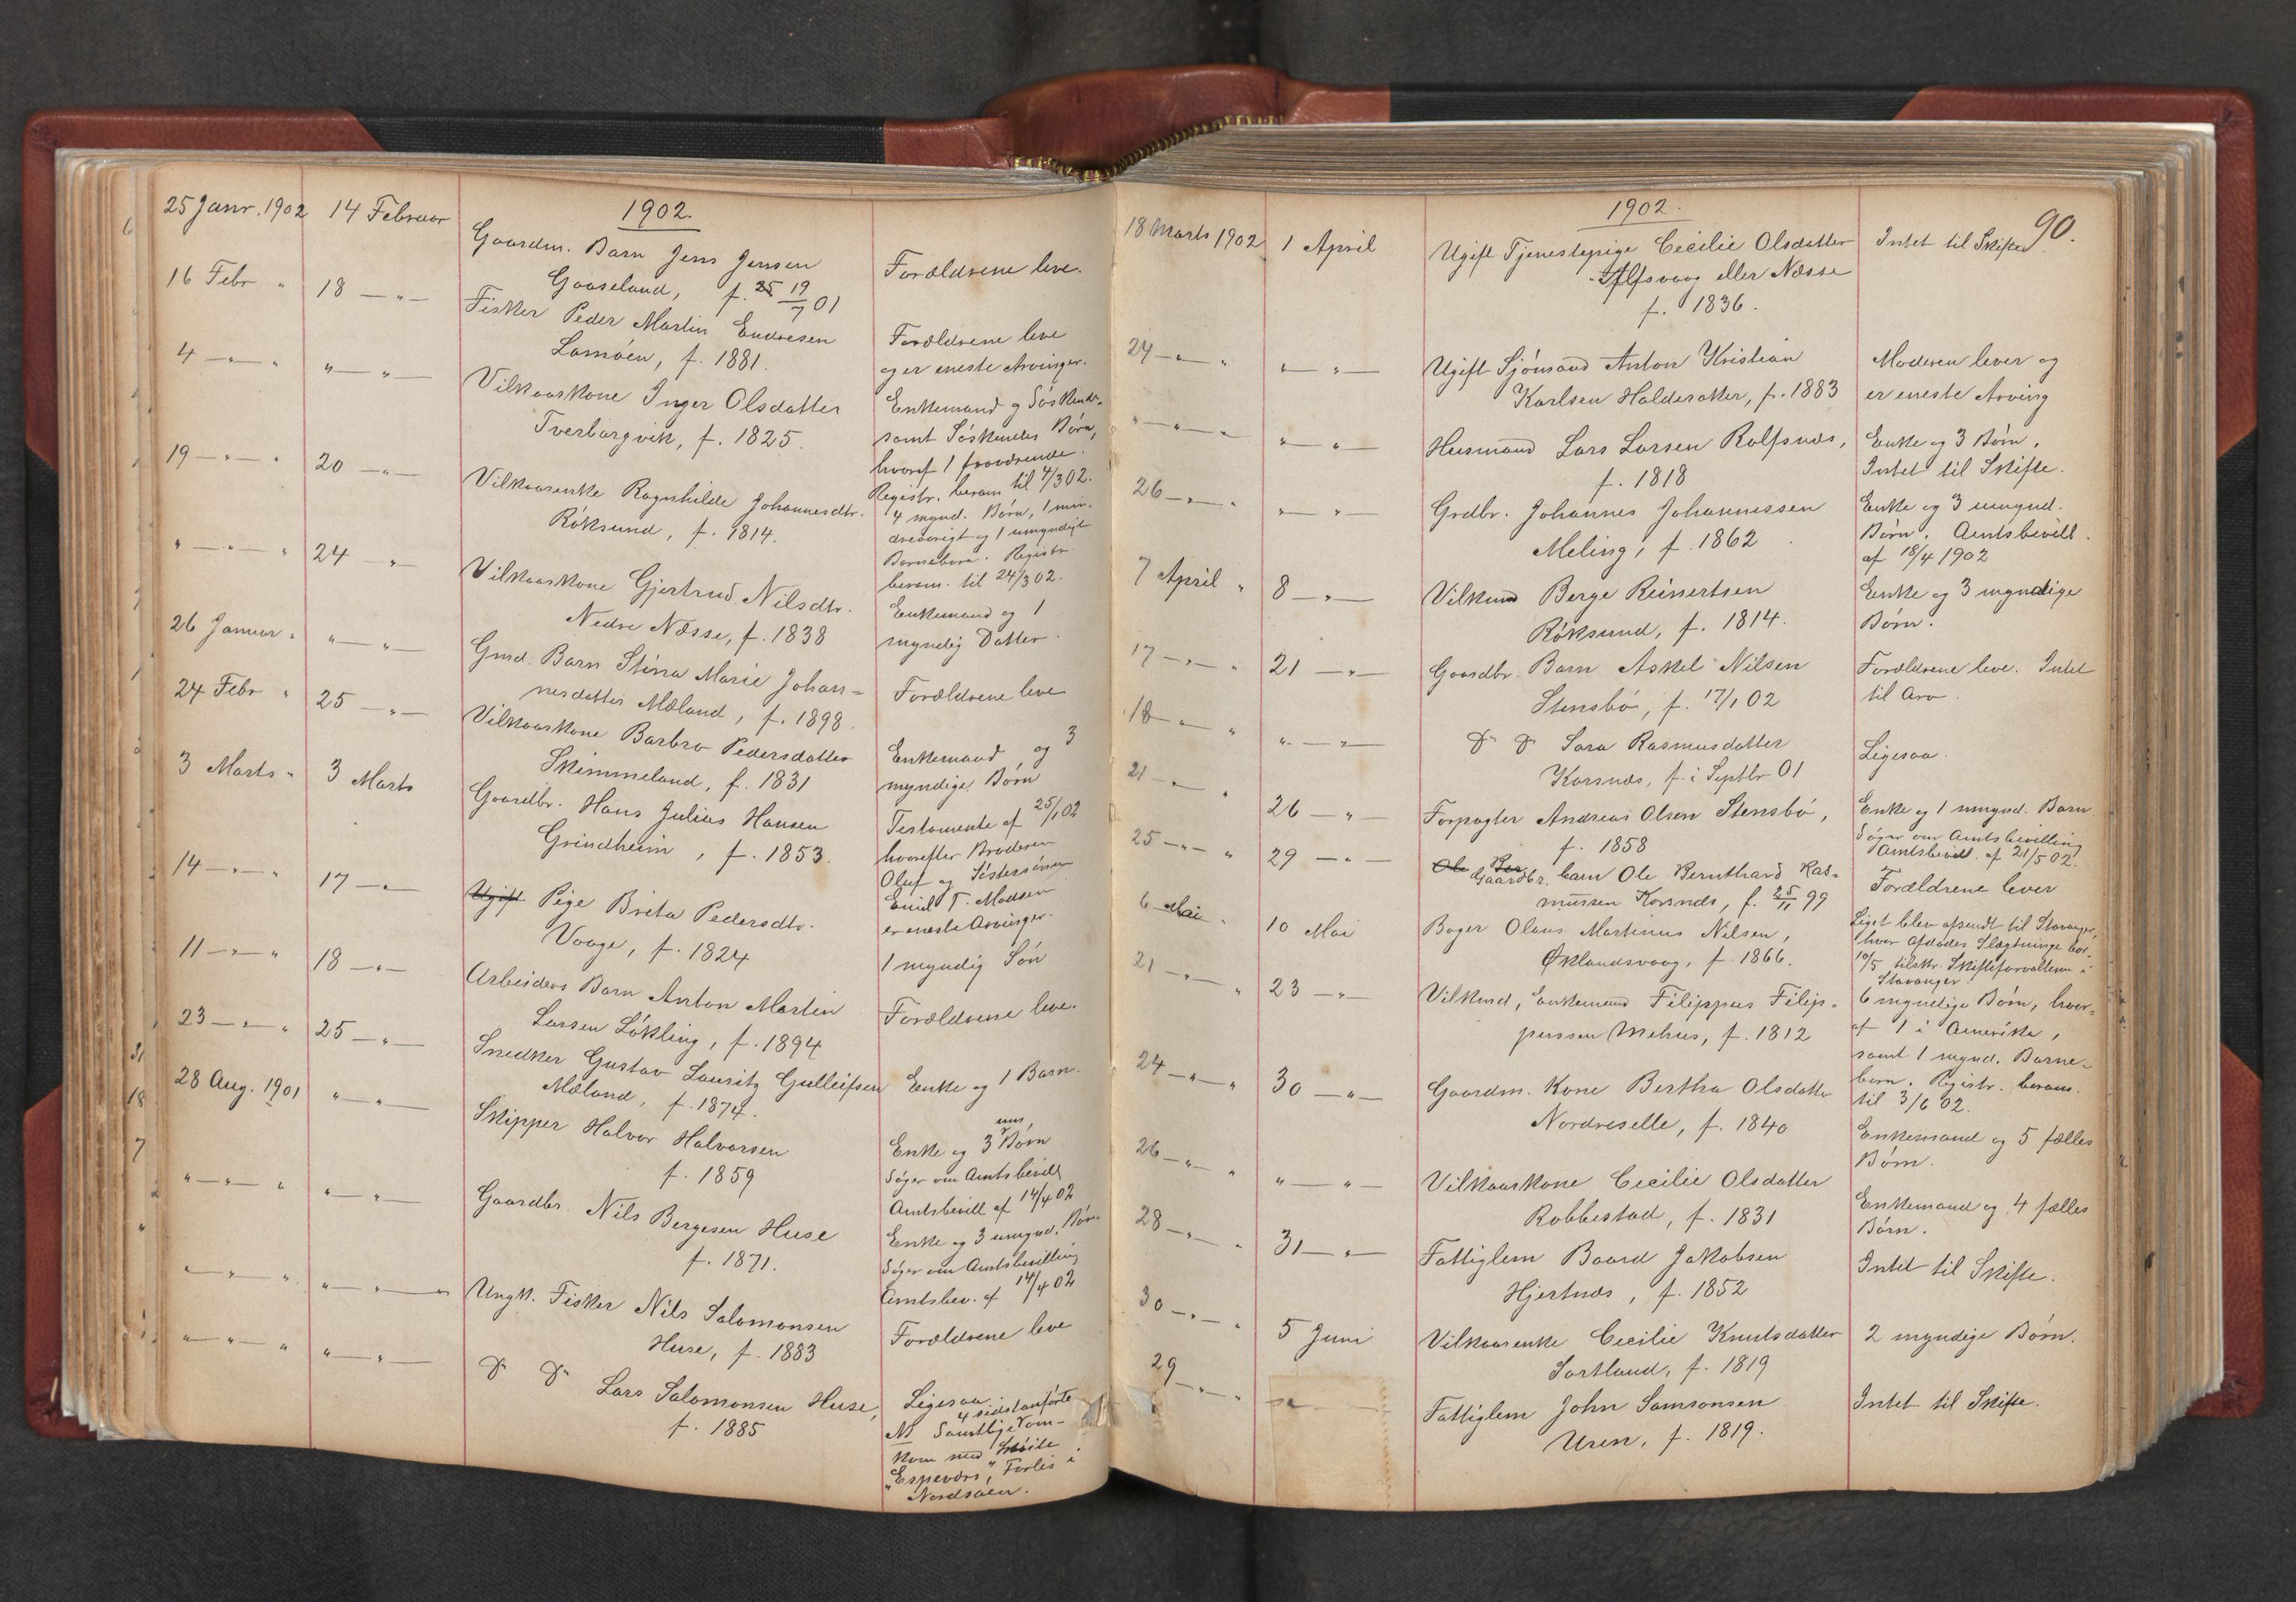 1902.
25 Janr. 1902 14 Februar Gaardm. Barn Jens Jensen
Gaaseland, f. 19/7 01
Forældrene leve.
16 Febr " 18 — " — Fisker Peder Martin Endresen
Lamøen, f. 1881.
Forældrene leve
og er eneste Arvinger.
4 — " — " " — " — Vilkaarskone Inger Olsdatter
Tverborgvik, f. 1825.
Enkemand og Søskende
samt Søskendes Børn,
hvoraf 1 fraværende.
Registr. beram til 4/3 02.
19 — " — " 20 — " — Vilkaarsenke Ragnhilde Johannesdtr.
Røksund, f. 1814.
4 mynd. Børn, 1 min-
dreaarigt og 1 umyndigt
Barnebarn. Registr
beram. til 24/3 02.
" — " — " 24 — " — Vilkaarskone Gjertrud Nilsdtr.
Nedre Næsse, f. 1838
Enkemand og 1
myndig Datter.
26 Januar " " — " — Gmd. Barn Stina Marie Johan-
nesdatter Mæland, f. 1898.
Forældrene leve
24 Febr " 25 — " — Vilkaarskone Barbro Pedersdatter
Skimmeland, f. 1831
Enkemand og 3
myndige Børn
3 Marts " 3 Marts Gaardbr. Hans Julius Hansen
Grindheim, f. 1853.
Testamente af 25/1 02
hvorefter Broderen
Oluf og Søstersønnen
Emil T. Madsen
er eneste Arvinger.
14 — " — " 17 — " — Ugift Pige Brita Pedersdtr.
Vaage, f. 1824
1 myndig Søn
11 — " — " 18 — " — Arbeiders Barn Anton Martin
Larsen Løkling, f. 1894
Forældrene leve.
23 — " — " 25 — " — Snedker Gustav Lauritz Gulleifsen
Mæland, f. 1874.
Enke og 1 Barn.
28 Aug. 1901 " — " — Skipper Halvor Halvorsen
f. 1859
Enke og 3 um, Børn
Søger om Amtsbevill
Amtsbevill af 14/4 02
" — " — " " — " — Gaardbr. Nils Bergesen Huse
f. 1871.
Enke og 3 umynd. Børn
Søger om Amtsbevilling
Amtsbev. af 14/4 02
" — " — " " — " — " Ungk. Fisker Nils Salomonsen
Huse, f. 1883
Forældrene leve
" — " — " " — " — Do Do Lars Salomonsen Huse,
f. 1885
Ligesaa.
4 sidstanførte
NB Samtlige om-
kom med Skøite
"Espevær", Forlis i
Nordsøen.
90.
1902.
18 Marts 1902 1 April Ugift Tjenestepige Cecilie Olsdatter
Alfsvaag eller Næsse
f. 1836.
Intet til Skifte
24 — " — " " — " — Ugift Sjømand Anton Kristian
Karlsen Halderaker, f. 1883
Moderen lever og
er eneste Arving
" — " — " " — " — Husmand Lars Larsen Rolfsnæs,
f. 1818
Enke og 3 Børn.
Intet til Skifte.
26 — " — " " — " — Grdbr. Johannes Johannessen
Meling, f. 1862
Enke og 3 umynd.
Børn. Amtsbevill.
af 18/4 1902
7 April " 8 — " — Vilkmd Berge Reinertsen
Røksund, f. 1814.
Enke og 3 myndige
Børn.
17 — " — " 21 — " — Gaardbr. Barn Askel Nilsen
Stensbø, f. 17/1 02
Forældrene leve. Intet
til Arv.
18 — " — " " — " — Do Do Sara Rasmusdatter
Korsnæs, f. i Septbr 01
Ligesaa.
21 — " — " 26 — " — Forpagter Andreas Olsen Stensbø,
f. 1858
Enke og 1 umynd. Barn
Søger om Amtsbevilling
Amtsbevill. af 21/5 02.
25 — " — " 29 — " — Ole Ber Gaardbr. barn Ole Bernthard Ras-
mussen Korsnæs, f. 25/11 99
Forældrene lever
6 Mai " 10 Mai Bager Olaus Martinus Nilsen,
Øklandsvaag, f. 1866.
Liget blev afsendt til Stavanger,
hvor Afdødes Slægtninge bor,
10/5 tilskr. Skifteforvalteren i
Stavanger.
21 — " — " 23 — " — Vilkmd, Enkemand Filippus Filip-
pussen Mehus, f. 1812
6 myndige Børn, hvor-
af 1 i Amerika,
samt 1 mynd. Barne-
barn. Registr. beram.
til 3/6 02.
24 — " — " 30 — " — Gaardm. Kone Bertha Olsdatter
Nordreselle, f. 1840
Enkemand og 5 fælles
Børn.
26 — " — " " — " — Vilkaarskone Cecilie Olsdatter
Robbestad, f. 1831
Enkemand og 4 fælles
Børn.
28 — " — " 31 — " — Fattiglem Baard Jakobsen
Hjertnæs, f. 1852
Intet til Skifte.
30 — " — " 5 Juni Vilkaarsenke Cecilie Knutsdatter
Sortland, f. 1819
2 myndige Børn.
29 — " — " Fattiglem John Samsonsen
Uren, f. 1819.
Intet til Skifte.